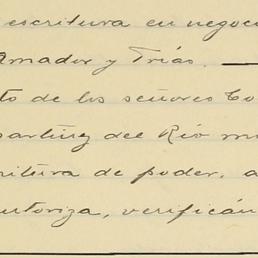 escritura en negoci
Amador y Trías.
to de los señores Co
artínz del Río m
ritura de poder, a
utoriza, verificán